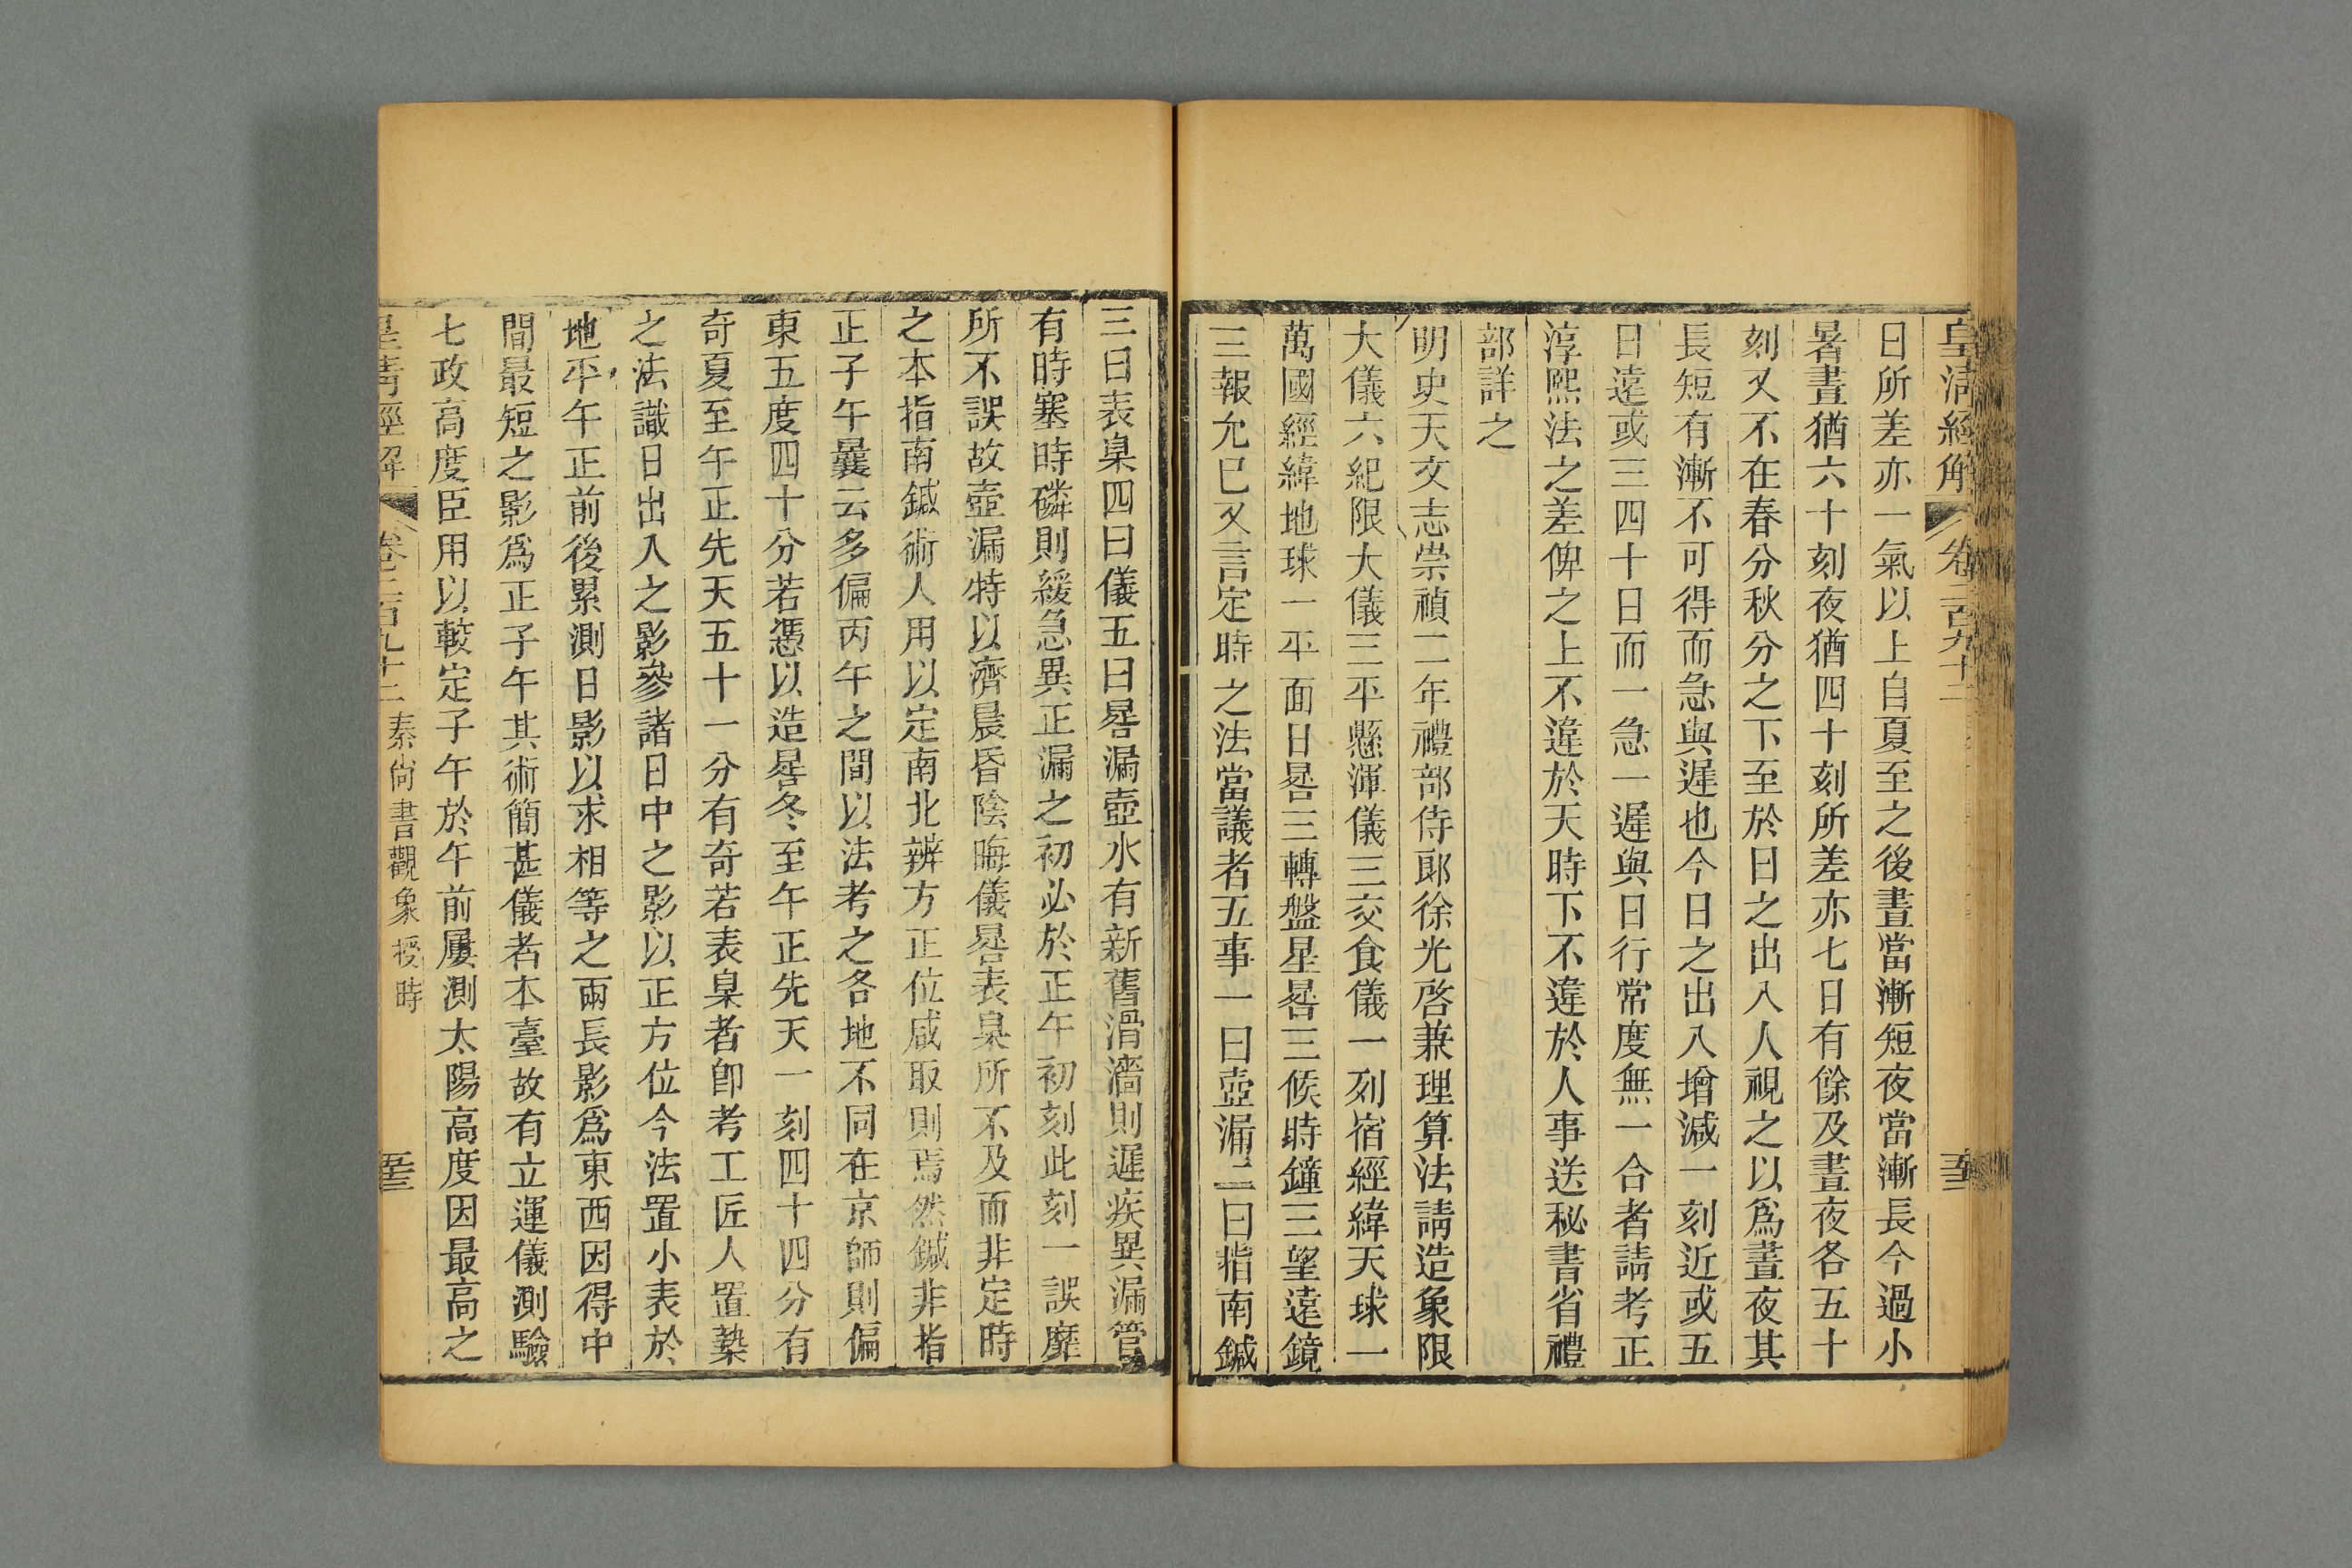 皇清經解 卷二百九十二
日所差亦一氣以上自夏至之後晝當漸短夜當漸長今過小
暑晝猶六十刻夜猶四十刻所差亦七日有餘及晝夜各五十
刻又不在春分秋分之下至於日之出入人視之以爲晝夜其
長短有漸不可得而急與遲也今日之出入增減一刻近或五
日遠或三四十日而一急一遲與日行常度無一合者請考正
淳熙法之差俾之上不違於天時下不違於人事送秘書省禮
部詳之
明史天文志崇禎二年禮部侍郎徐光啓兼理算法請造象限
大儀六紀限大儀三平懸渾儀三交食儀一列宿經緯天球一
萬國經緯地球一平面日晷三轉盤星晷三候時鐘三望遠鏡
三報允已又言定時之法當議者五事一曰壺漏二曰指南鍼
三曰表臬四曰儀五曰晷漏壺水有新舊滑濇則遲疾異漏管
有時塞時磷則緩急異正漏之初必於正午初刻此刻一誤靡
所不誤故壺漏特以濟晨昏陰晦儀晷表臬所不及而非定時
之本指南鍼術人用以定南北辨方正位咸取則焉然鍼非指
正子午曩云多偏丙午之間以法考之各地不同在京師則偏
東五度四十分若憑以造晷冬至午正先天一刻四十四分有
奇夏至午正先天五十一分有奇若表臬者卽考工匠人置槷
之法識日出入之影參諸日中之影以正方位今法置小表於
地平午正前後累測日影以求相等之兩長影爲東西因得中
間最短之影爲正子午其術簡甚儀者本臺故有立運儀測驗
七政高度臣用以較定子午於午前屢測太陽高度因最高之
皇清經解 卷二百九十二 秦尙書觀象授時